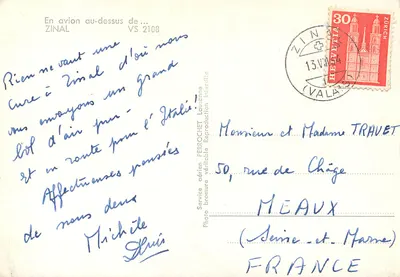 En avion au-dessus de...
ZINAL VS 2108
Rien ne vaut une
cure à Zinal d'où nous
vous envoyons un grand
bol d'air pur -
et en route pour l'Italie!
Affectueuses pensées
de nous deux
Michèle
Service aérien PERROCHET Lausanne
Photo bromure véritable Reproduction interdite
ZINAL
(VALAIS)
30
HELVETIA
ZÜRICH
Monsieur et Madame TRAVET
50, rue de Chàge
MEAUX
(Seine-et-Marne)
FRANCE